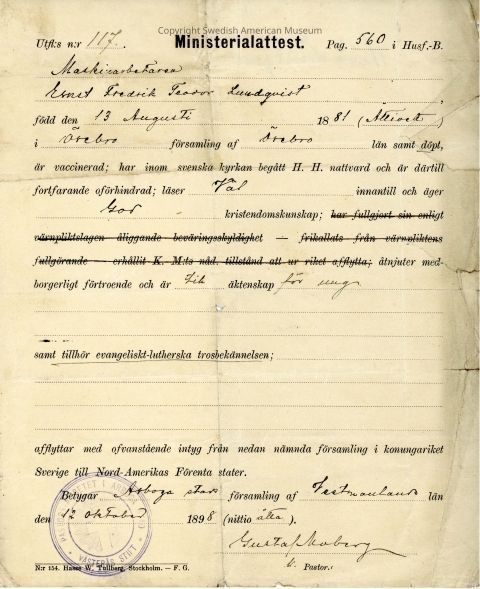 Copyright Swedish American Museum
Utfl:s n:r 117. Ministerialattest. Pag. 560 i Husf.-B.
Maskinarbetaren
Ernst Fredrik Teodor Lundqvist
född den 13 Augusti 1881 (Åttioett)
i Örebro församling af Örebro län samt döpt,
är vaccinerad; har inom svenska kyrkan begått H. H. nattvard och är därtill
fortfarande oförhindrad; läser Väl innantill och äger
God kristendomskunskap; har fullgjort sin enligt
värnpliktslagen åliggande beväringsskyldighet — frikallats från värnpliktens
fullgörande — erhållit K. M:ts nåd. tillstånd att ur riket afflytta; åtnjuter med-
borgerligt förtroende och är till äktenskap för ung
samt tillhör evangeliskt-lutherska trosbekännelsen;
afflyttar med ofvanstående intyg från nedan nämnda församling i konungariket
Sverige till Nord-Amerikas Förenta stater.
Betygar Arboga stads församling af Vestmanlands län
den 12 Oktober 1898 (nittio åtta).
Gustaf Moberg
Pastor.
VÄSTERÅS STIFT
N:r 154. Hasse W. Tullberg, Stockholm. — F. G.